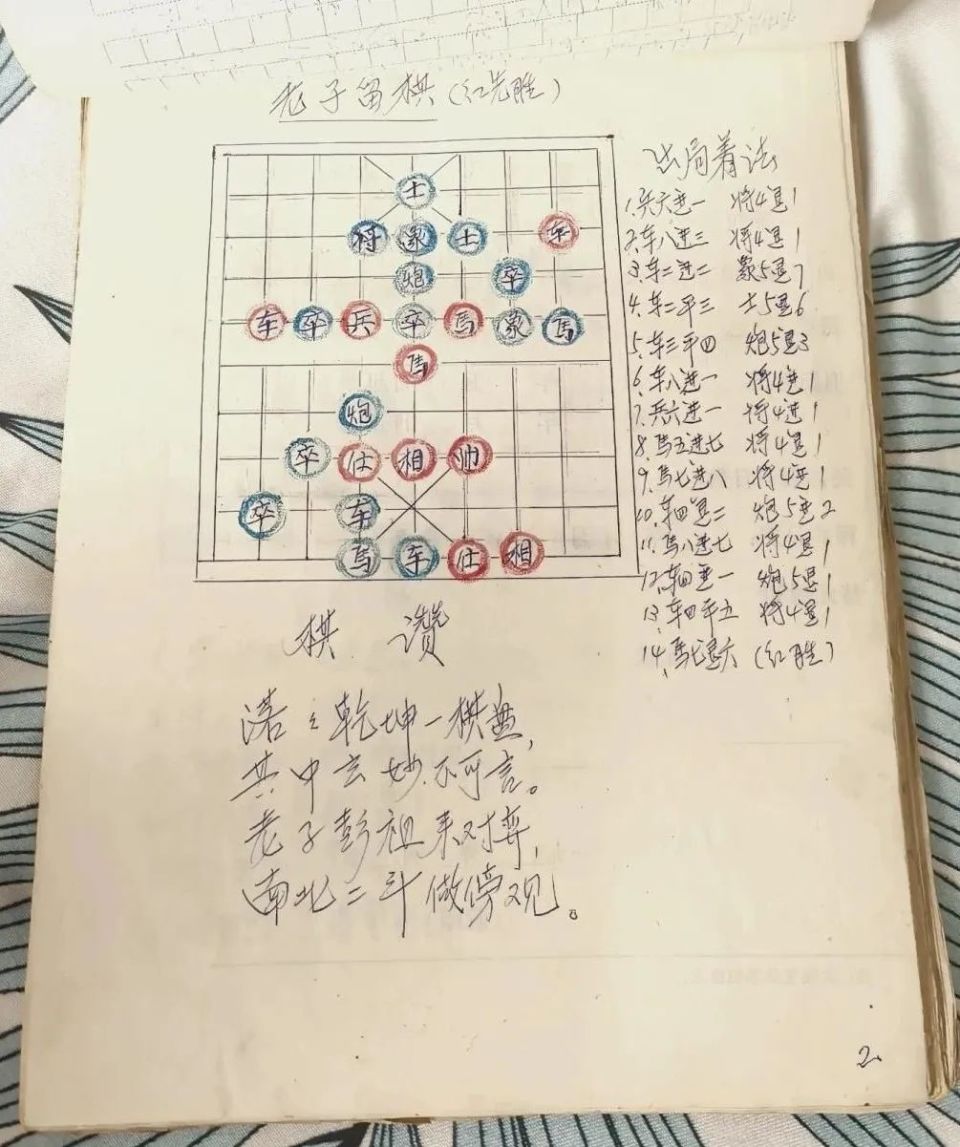 老子留棋（红先胜）
士
将 象 士 车
炮 卒
车 卒 兵 卒 馬 象 馬
馬
炮
卒 仕 相 帅
卒 车
馬 车 仕 相
出局着法
1、兵六进一 将4退1
2、车八进三 将4退1
3、车二进二 象5退7
4、车二平三 士5退6
5、车三平四 炮5退3
6、车八进一 将4进1
7、兵六进一 将4进1
8、馬五进七 将4退1
9、馬七进八 将4进1
10、车四退二 炮5进2
11、馬八进七 将4退1
12、车四进一 炮5退1
13、车四平五 将4退1
14、馬七退六（红胜）
棋 讚
荡之乾坤一棋盘，
其中玄妙不可言。
老子彭祖来对弈，
南北二斗做傍观。
2、